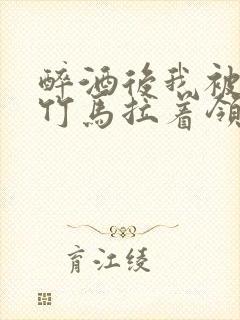 醉酒後我被
竹馬拉着領
育江绫